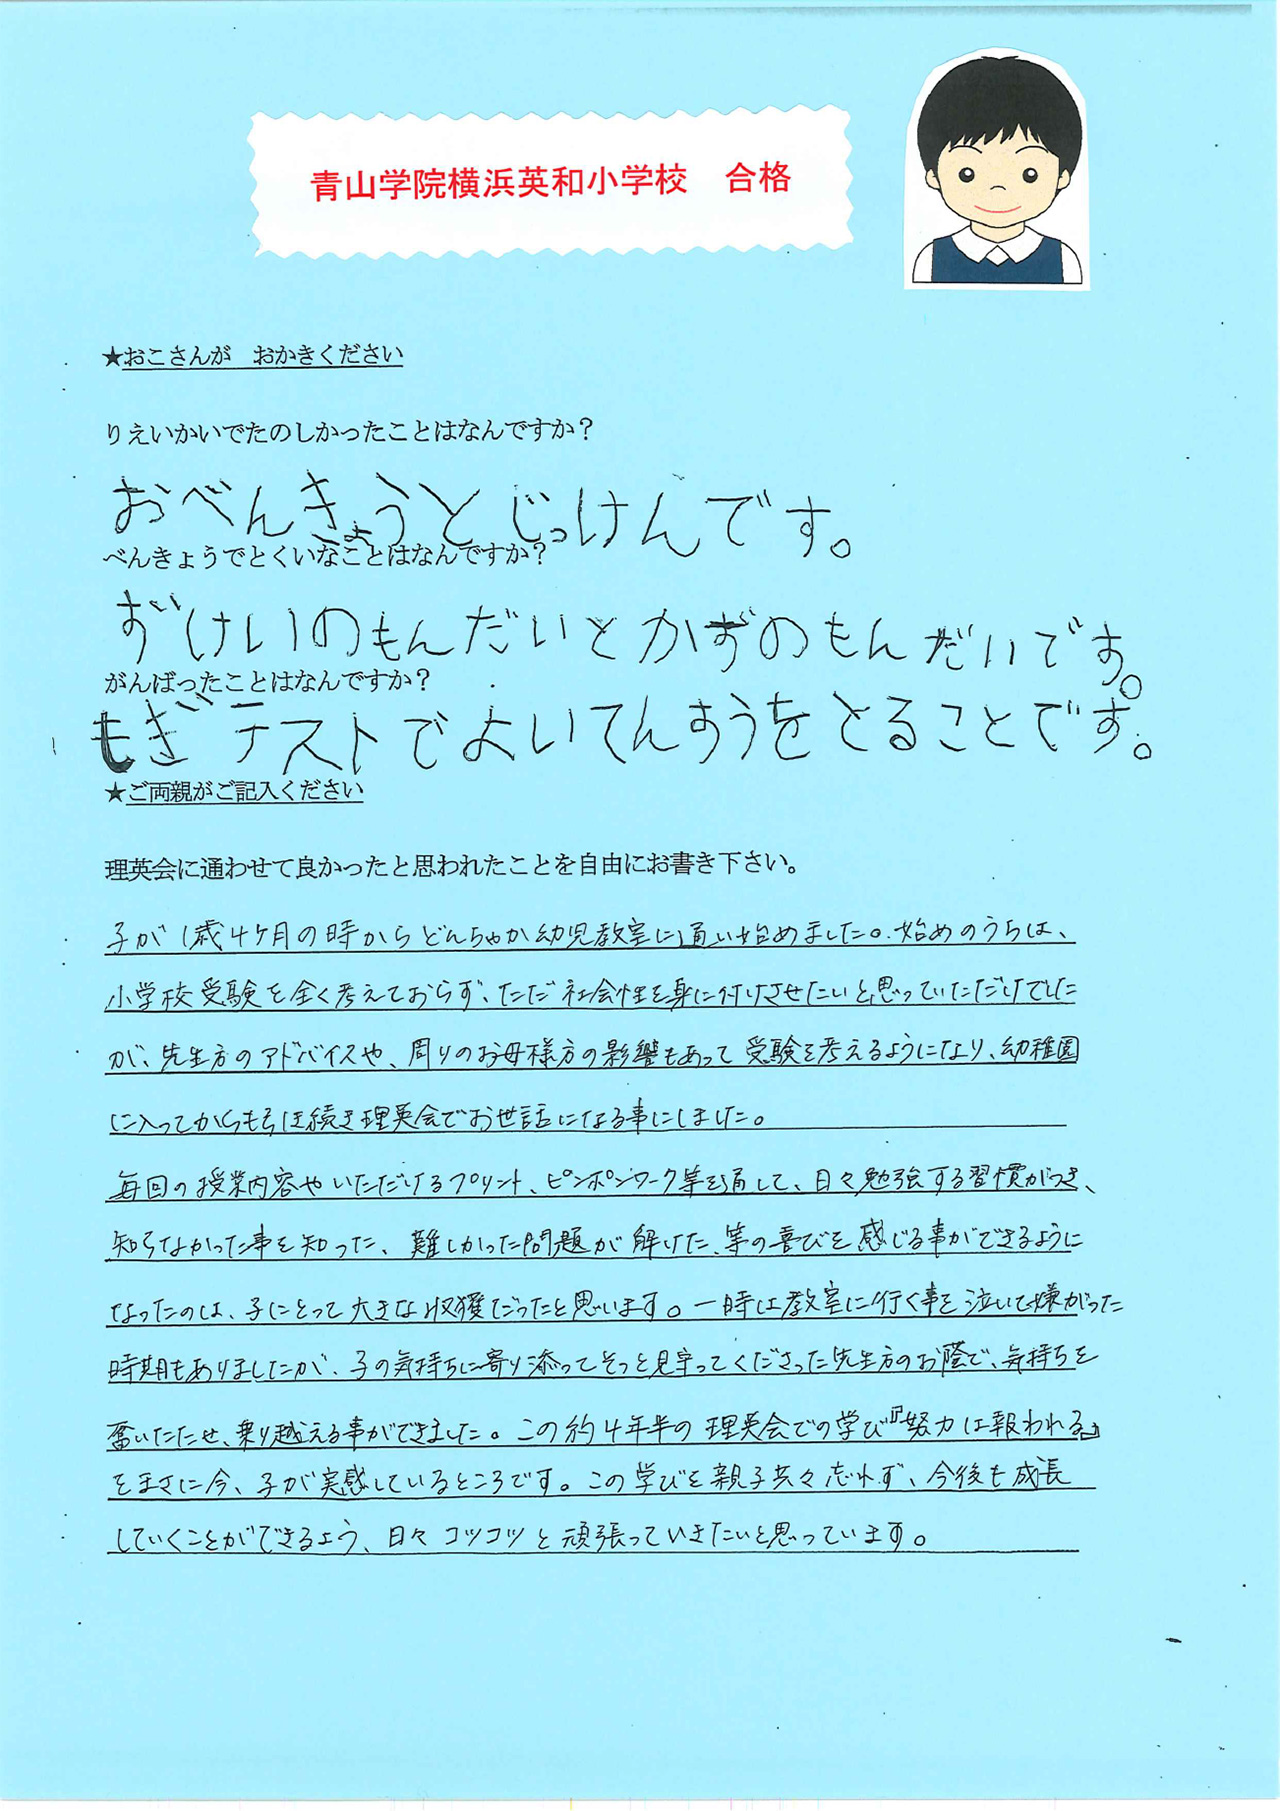 青山学院横浜英和小学校　合格
★おこさんが　おかきください
りえいかいでたのしかったことはなんですか？
おべんきょうとじっけんです。
べんきょうでとくいなことはなんですか？
ずけいのもんだいとかずのもんだいです。
がんばったことはなんですか？
もぎテストでよいてんすうをとることです。
★ご両親がご記入ください
理英会に通わせて良かったと思われたことを自由にお書き下さい。
子が1歳4ヶ月の時からどんちゃか幼児教室に通い始めました。始めのうちは、
小学校受験を全く考えておらず、ただ社会性を身に付けさせたいと思っていただけでした
が、先生方のアドバイスや、周りのお母様方の影響もあって受験を考えるようになり、幼稚園
に入ってからも引き続き理英会でお世話になる事にしました。
毎回の授業内容やいただけるプリント、ピンポンワーク等を通して、日々勉強する習慣がつき、
知らなかった事を知った、難しかった問題が解けた、等の喜びを感じる事ができるように
なったのは、子にとって大きな収獲だったと思います。一時は教室に行く事を泣いて嫌がった
時期もありましたが、子の気持ちに寄り添ってそっと見守ってくださった先生方のお蔭で、気持ちを
奮いたたせ、乗り越える事ができました。この約4年半の理英会での学び『努力は報われる』
をまさに今、子が実感しているところです。この学びを親子共々忘れず、今後も成長
していくことができるよう、日々コツコツと頑張っていきたいと思っています。